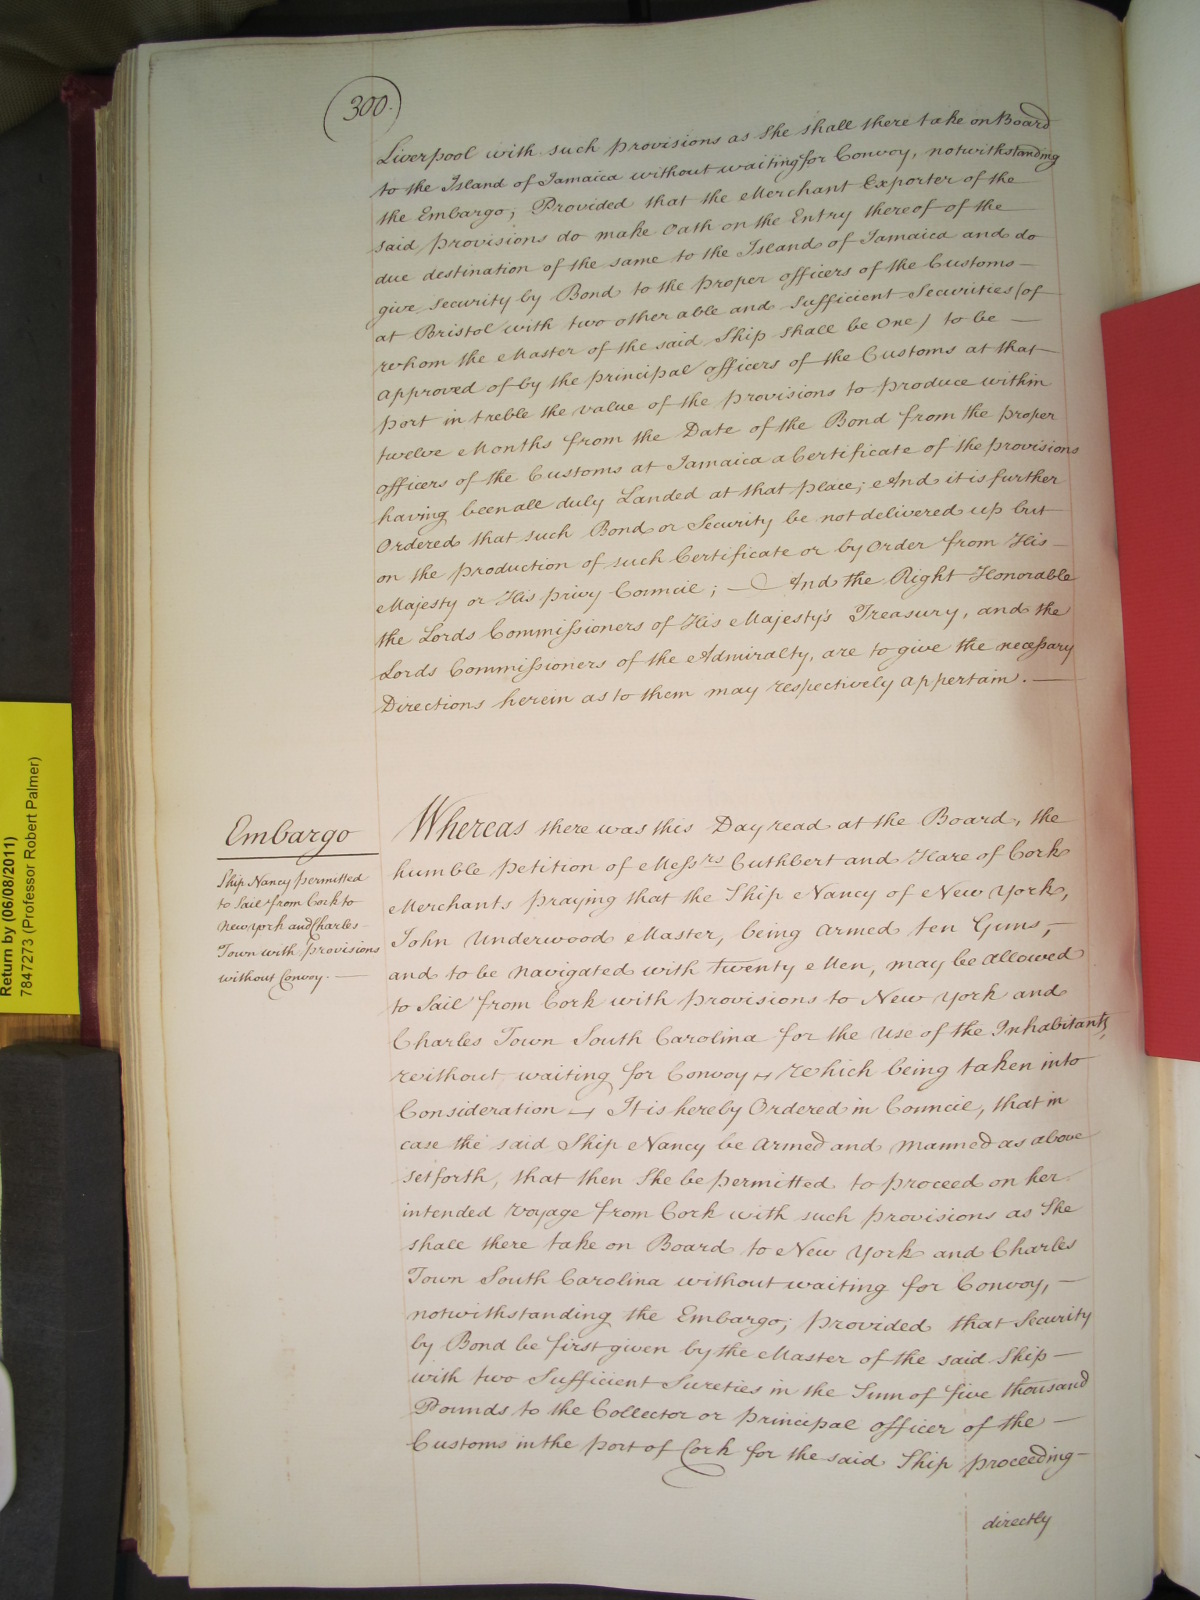 300.
Liverpool with such provisions as She shall there take on Board
to the Island of Jamaica without waiting for Convoy, notwithstanding
the Embargo; Provided that the Merchant Exporter of the
said provisions do make Oath on the Entry thereof of the
due destination of the same to the Island of Jamaica and do
give security by Bond to the proper officers of the Customs —
at Bristol with two other able and sufficient Securities (of
whom the Master of the said Ship shall be One) to be —
approved of by the principal officers of the Customs at that
port in treble the value of the provisions to produce within
twelve Months from the Date of the Bond from the proper
officers of the Customs at Jamaica a Certificate of the provisions
having been all duly Landed at that place; And it is further
Ordered that such Bond or Security be not delivered up but
on the production of such Certificate or by Order from His —
Majesty or His privy Council; — And the Right Honorable
the Lords Commissioners of His Majesty's Treasury, and the
Lords Commissioners of the Admiralty, are to give the necessary
Directions herein as to them may respectively appertain. —
Embargo
Ship Nancy permitted
to Sail from Cork to
New York and Charles
Town with provisions
without Convoy. —
Whereas there was this Day read at the Board, the
humble petition of Messrs Cuthbert and Hare of Cork
Merchants praying that the Ship Nancy of New York,
John Underwood Master, being armed ten Guns, —
and to be navigated with twenty Men, may be allowed
to Sail from Cork with provisions to New York and
Charles Town South Carolina for the Use of the Inhabitants,
without waiting for Convoy — Which being taken into
Consideration — It is hereby Ordered in Council, that in
case the said Ship Nancy be Armed and manned as above
set forth, that then She be permitted to proceed on her
intended voyage from Cork with such provisions as She
shall there take on Board to New York and Charles
Town South Carolina without waiting for Convoy, —
notwithstanding the Embargo; provided that Security
by Bond be first given by the Master of the said Ship —
with two Sufficient Sureties in the Sum of five thousand
Pounds to the Collector or principal officer of the —
Customs in the port of Cork for the said Ship proceeding —
directly
Return by (06/08/2011)
7847273 (Professor Robert Palmer)